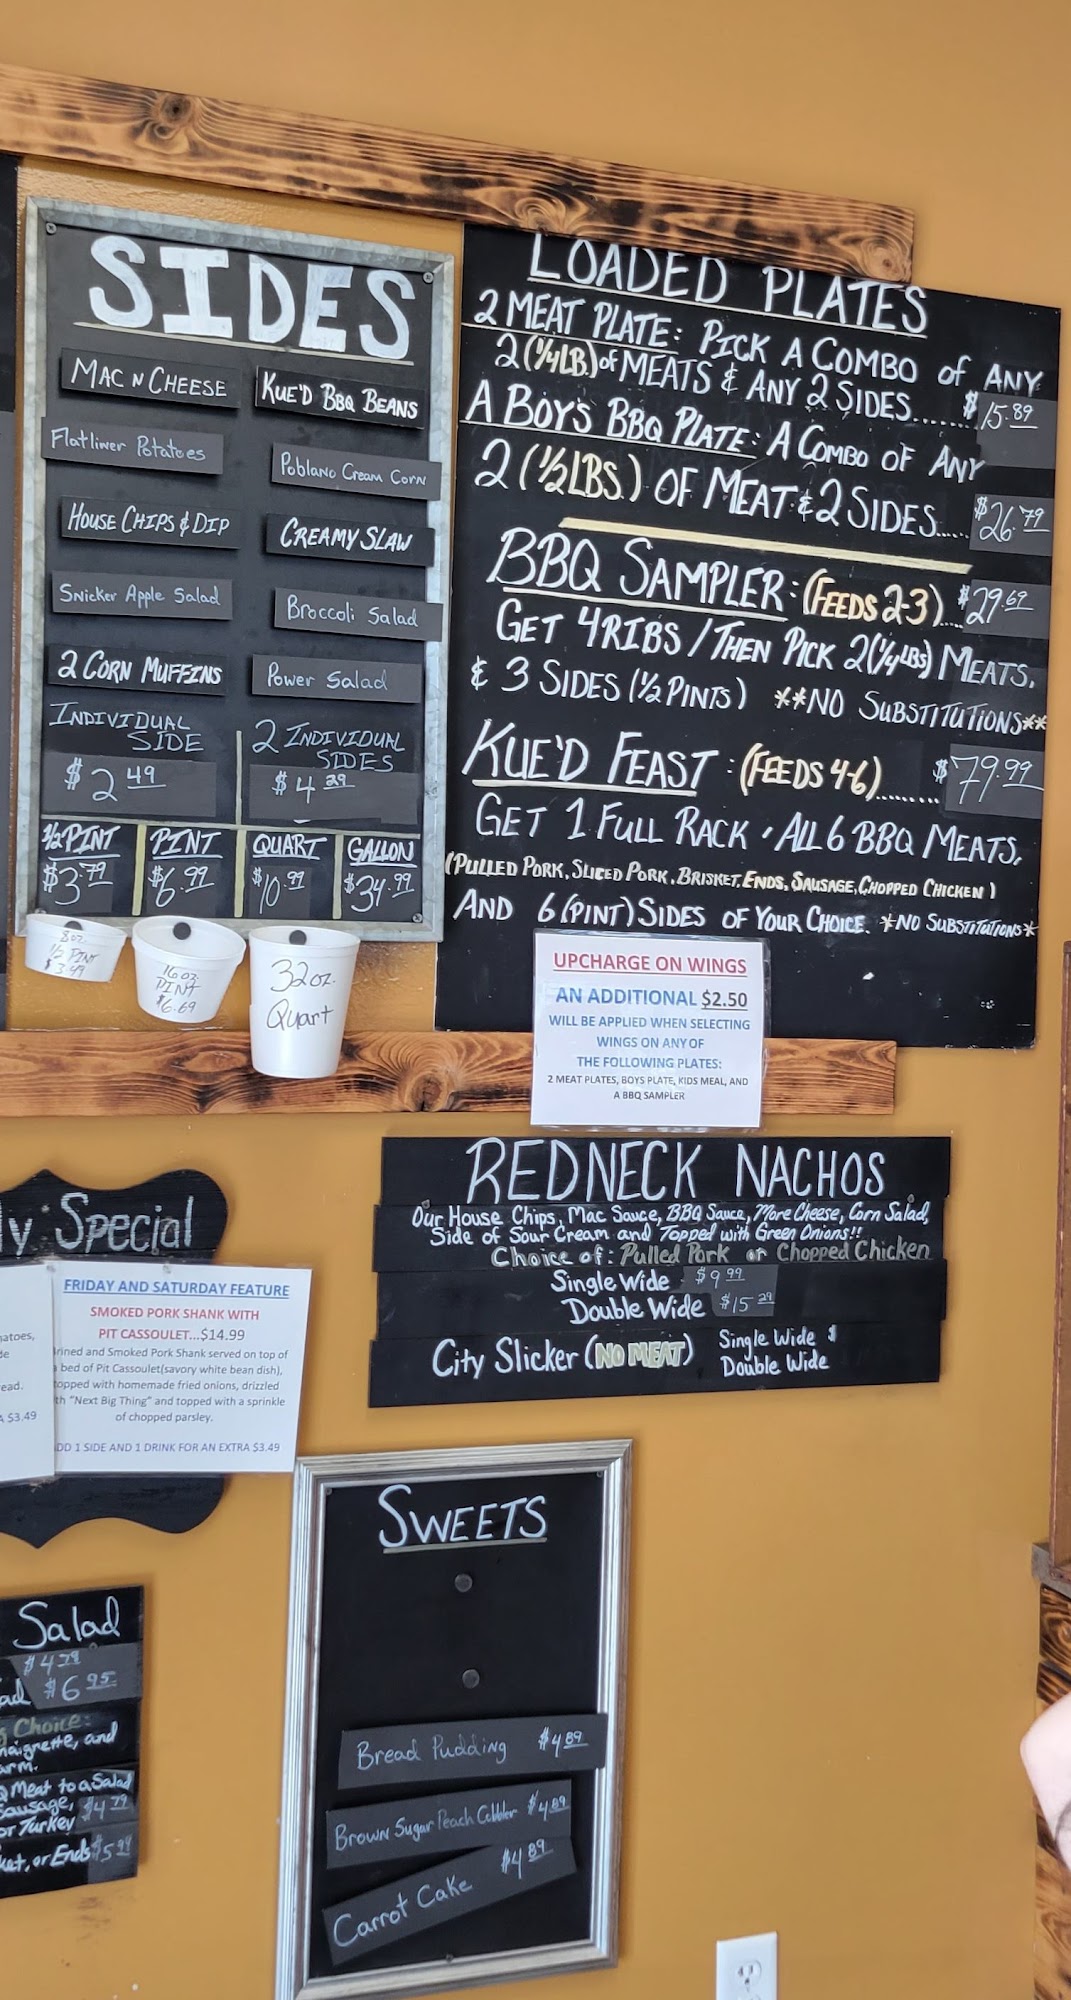 SIDES
MAC N CHEESE
KUE'D BBQ BEANS
Flatliner Potatoes
Poblano Cream Corn
HOUSE CHIPS & DIP
CREAMY SLAW
Snicker Apple Salad
Broccoli Salad
2 CORN MUFFINS
Power Salad
INDIVIDUAL SIDE
$2.49
2 INDIVIDUAL SIDES
$4.29
½ PINT
$3.79
PINT
$6.99
QUART
$10.99
GALLON
$34.99
8oz.
½ PINT
$3.49
16oz.
PINT
$6.69
32oz.
Quart
LOADED PLATES
2 MEAT PLATE: PICK A COMBO of ANY
2 (¼LB.) of MEATS & ANY 2 SIDES...... $15.89
A BOY'S BBQ PLATE: A COMBO OF ANY
2 (½LBS.) OF MEAT & 2 SIDES...... $26.79
BBQ SAMPLER: (FEEDS 2-3)... $29.69
GET 4 RIBS / THEN PICK 2 (¼LBS) MEATS,
& 3 SIDES (½ PINTS) **NO SUBSTITUTIONS**
KUE'D FEAST: (FEEDS 4-6)........ $79.99
GET 1 FULL RACK, ALL 6 BBQ MEATS,
(PULLED PORK, SLICED PORK, BRISKET, ENDS, SAUSAGE, CHOPPED CHICKEN)
AND 6 (PINT) SIDES OF YOUR CHOICE. *NO SUBSTITUTIONS*
UPCHARGE ON WINGS
AN ADDITIONAL $2.50
WILL BE APPLIED WHEN SELECTING
WINGS ON ANY OF
THE FOLLOWING PLATES:
2 MEAT PLATES, BOYS PLATE, KIDS MEAL, AND
A BBQ SAMPLER
REDNECK NACHOS
Our House Chips, Mac Sauce, BBQ Sauce, More Cheese, Corn Salad,
Side of Sour Cream and Topped with Green Onions!!
Choice of: Pulled Pork or Chopped Chicken
Single Wide $9.99
Double Wide $15.29
City Slicker (NO MEAT) Single Wide $
Double Wide
ly Special
FRIDAY AND SATURDAY FEATURE
SMOKED PORK SHANK WITH
PIT CASSOULET...$14.99
rined and Smoked Pork Shank served on top of
bed of Pit Cassoulet(savory white bean dish),
opped with homemade fried onions, drizzled
th "Next Big Thing" and topped with a sprinkle
of chopped parsley.
DD 1 SIDE AND 1 DRINK FOR AN EXTRA $3.49
atoes,
de
ead.
A $3.49
SWEETS
Bread Pudding $4.89
Brown Sugar Peach Cobbler $4.89
Carrot Cake $4.89
Salad
$4.79
ad $6.95
Choice:
naigrette, and
arm.
Meat to a Salad
Sausage, $4.79
or Turkey
ket, or Ends $5.99